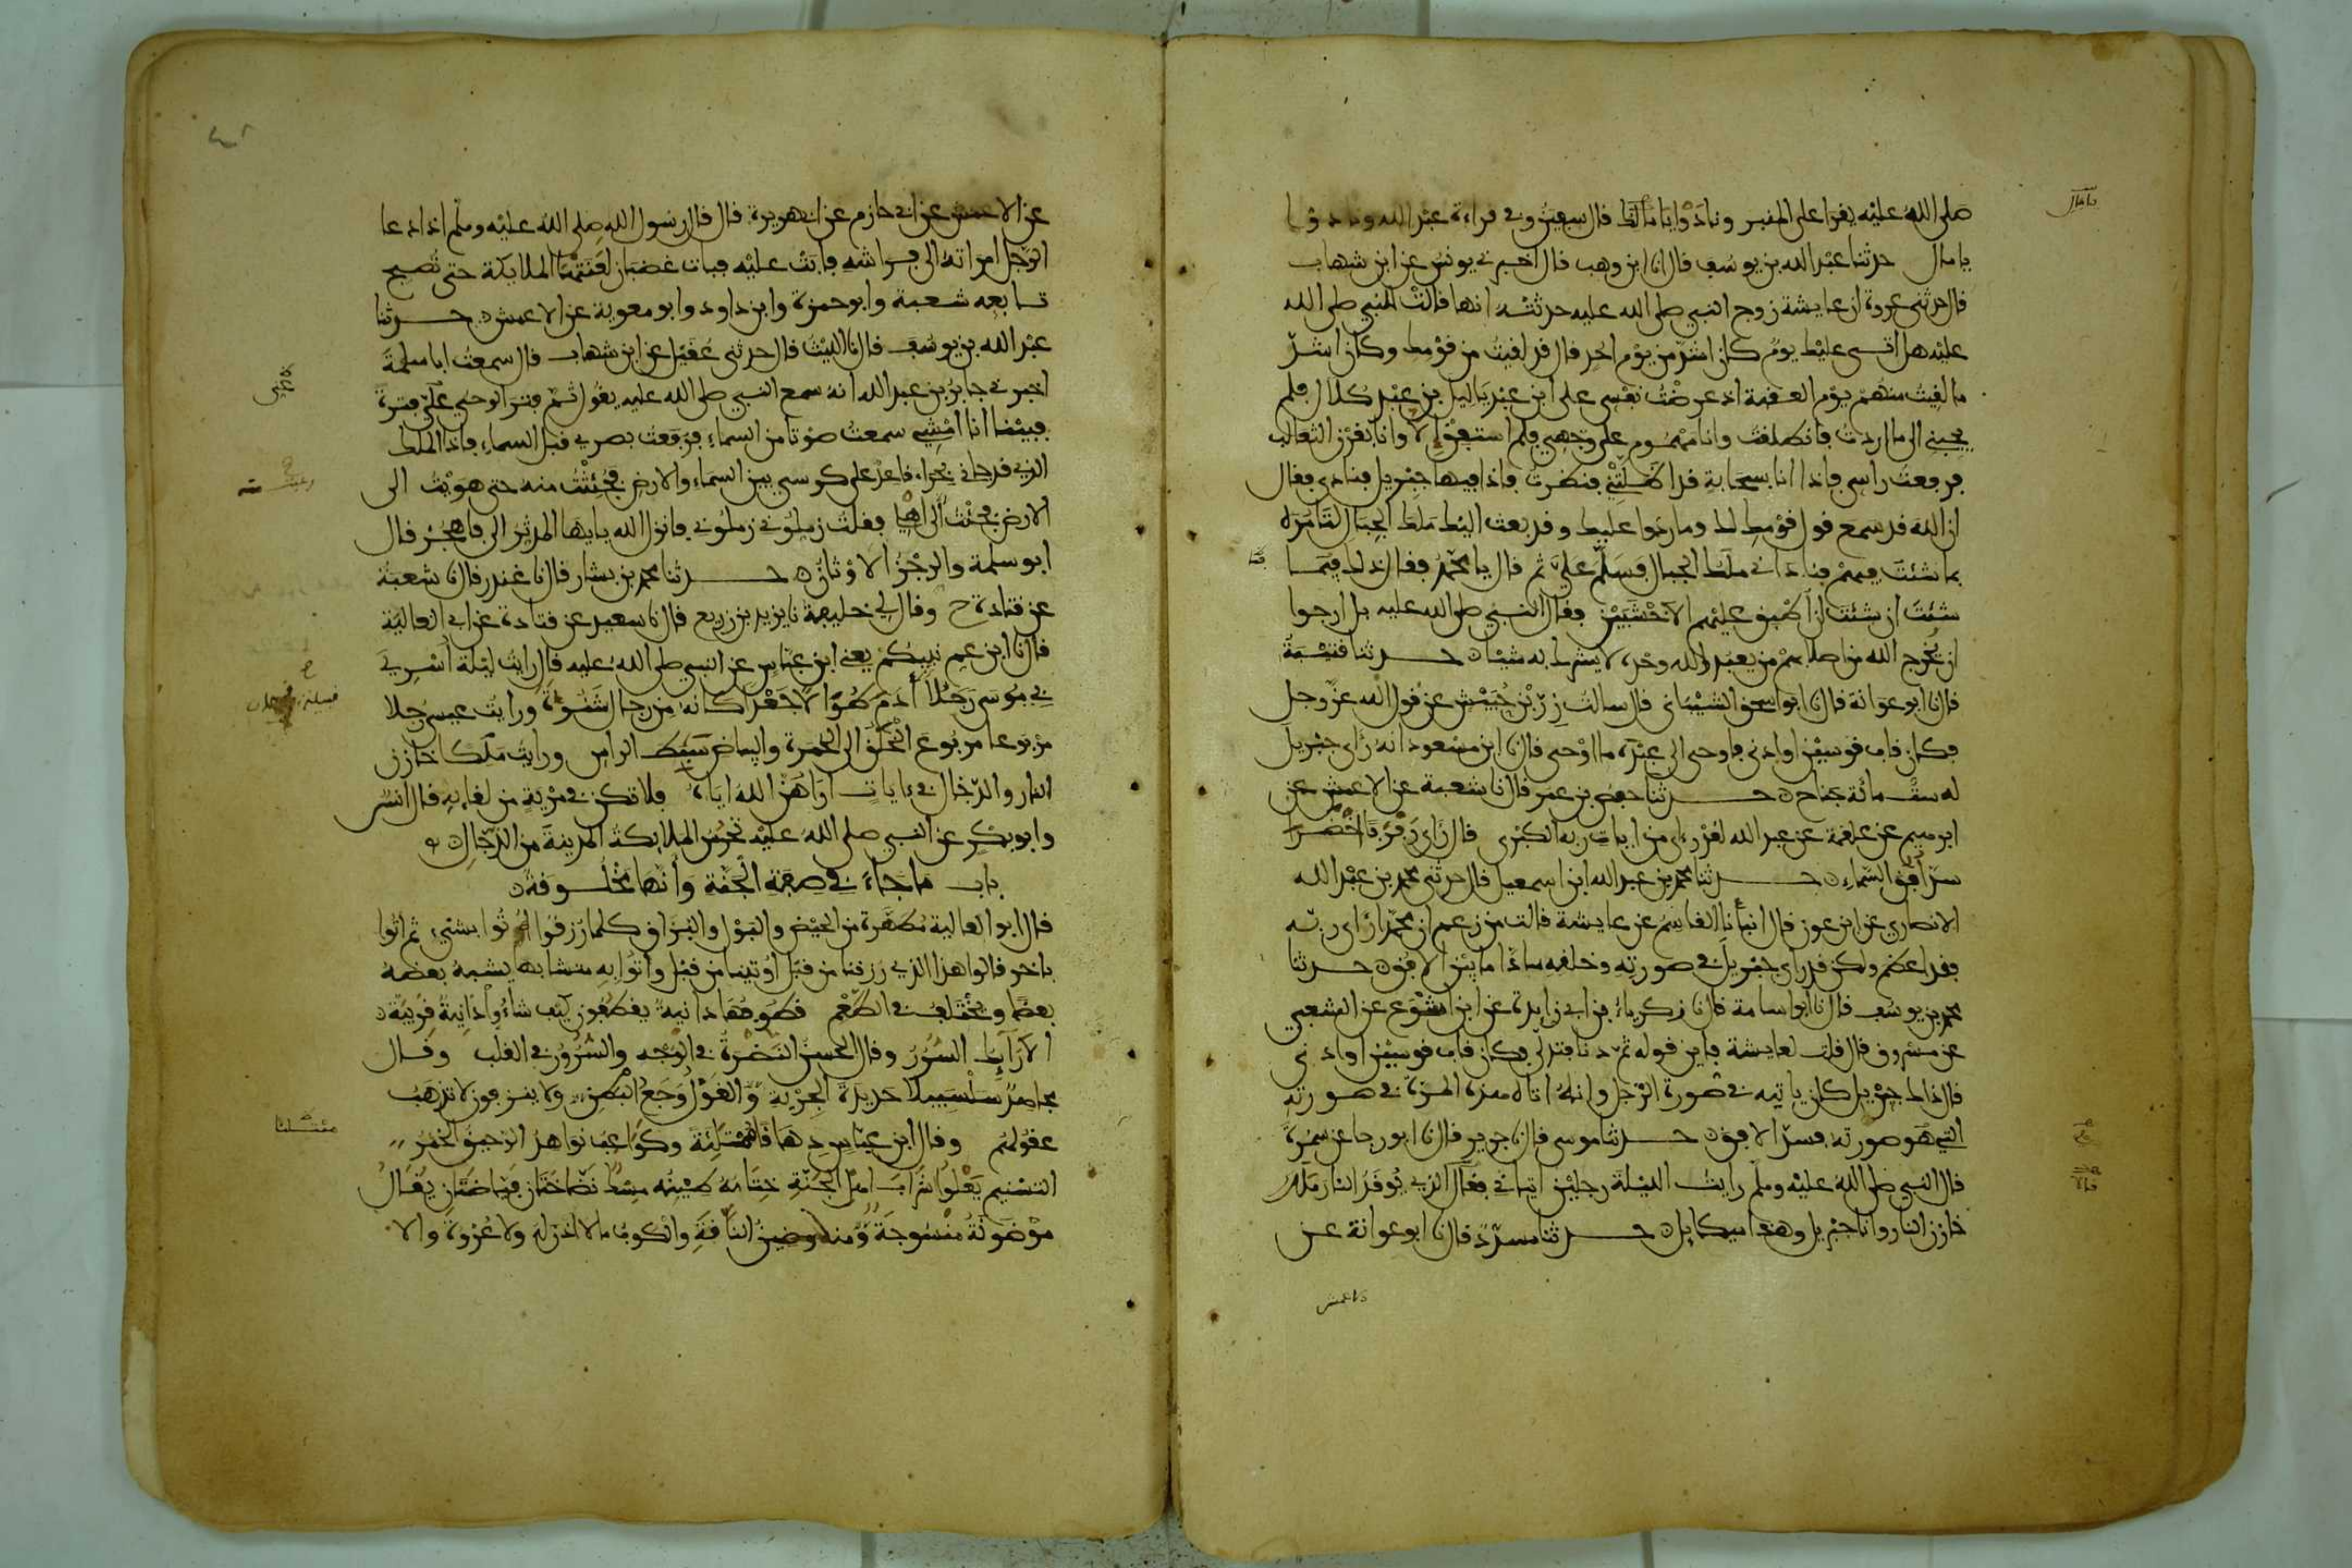 صلى الله عليه يقرا على المنبر ونادوا يا مالك قال سفين وفي قراءة عبد الله ونادوا
يا مال حدثنا عبد الله بن يوسف قال انا ابن وهب قال اخبرني يونس عن ابن شهاب
قال حدثني عروة ان عايشة زوج النبي صلى الله عليه حدثته انها قالت للنبي صلى الله
عليه هل اتى عليك يوم كان اشد من يوم احد قال قد لقيت من قومك وكان اشد
ما لقيت منهم يوم العقبة اذ عرضت نفسي على ابن عبد ياليل بن عبد كلال فلم
يجبني الى ما اردت فانطلقت وانا مهموم على وجهي فلم استفق الا وانا بقرن الثعالب
فرفعت راسي فاذا انا بسحابة قد اظلتني فنظرت فاذا فيها جبريل فنادى فقال
ان الله قد سمع قول قومك لك وما ردوا عليك وقد بعث اليك ملك الجبال لتامره
بما شئت فيهم فناداني ملك الجبال فسلم علي ثم قال يا محمد فقال ذلك فيما
شئت ان شئت ان اطبق عليهم الاخشبين فقال النبي صلى الله عليه بل ارجوا
ان يخرج الله من اصلابهم من يعبد الله وحده لا يشرك به شيئا حدثنا قتيبة
قال نا ابو عوانة قال نا ابو اسحق الشيباني قال سالت زر بن حبيش عن قول الله عز وجل
فكان قاب قوسين او ادنى فاوحى الى عبده ما اوحى قال نا ابن مسعود انه راى جبريل
له ست مائة جناح حدثنا حفص بن عمر قال نا شعبة عن الاعمش عن
ابرهيم عن علقمة عن عبد الله لقد راى من ايات ربه الكبرى قال راى رفرفا اخضر
سد افق السماء حدثنا محمد بن عبد الله ابن اسمعيل قال حدثني محمد بن عبد الله
الانصاري عن ابن عون قال انبأنا القاسم عن عايشة قالت من زعم ان محمدا راى ربه
فقد اعظم ولكن قد راى جبريل في صورته وخلقه سادا ما بين الافق حدثنا
محمد بن يوسف قال نا ابو اسامة قال نا زكرياء بن ابي زايدة عن ابن اشوع عن الشعبي
عن مسروق قال قلت لعايشة فاين قوله ثم دنا فتدلى فكان قاب قوسين او ادنى
قال ذاك جبريل كان ياتيه في صورة الرجل وانه اتاه هذه المرة في صورته
التي هو صورته فسد الافق حدثنا موسى قال نا جرير قال نا ابو رجا عن سمرة
قال النبي صلى الله عليه وسلم رايت الليلة رجلين اتياني فقال الذي يوقد النار ملك
خازن النار وانا جبريل وهذا ميكايل حدثنا مسدد قال نا ابو عوانة عن
الاعمش
عن الاعمش عن ابي حازم عن ابي هريرة قال قال رسول الله صلى الله عليه وسلم اذا دعا
الرجل امراته الى فراشه فابت عليه فبات غضبان لعنتها الملايكة حتى تصبح
تابعه شعبة وابو حمزة وابن داود وابو معوية عن الاعمش حدثنا
عبد الله بن يوسف قال نا الليث قال حدثني عقيل عن ابن شهاب قال سمعت ابا سلمة
اخبرني جابر بن عبد الله انه سمع النبي صلى الله عليه يقول ثم فتر الوحي علي فترة
فبينما انا امشي سمعت صوتا من السماء فرفعت بصري قبل السماء فاذا الملك
الذي قد جاني بحراء قاعد على كرسي بين السماء والارض فجئثت منه حتى هويت الى
الارض فجئت الى اهلي فقلت زملوني زملوني فانزل الله يايها المدثر الى فاهجر قال
ابو سلمة والرجز الاوثان حدثنا محمد بن بشار قال نا غندر قال نا شعبة
عن قتادة ح وقال لي خليفة نا يزيد بن زريع قال نا سعيد عن قتادة عن ابي العالية
قال نا ابن عم نبيكم يعني ابن عباس عن النبي صلى الله عليه قال رايت ليلة اسري
بي موسى رجلا آدم طوالا جعدا كانه من رجال شنوءة ورايت عيسى رجلا
مربوعا مربوع الخلق الى الحمرة والبياض سبط الراس ورايت ملكا خازن
النار والدجال في ءايات اراهن الله اياه فلا تكن في مرية من لقايه قال انس
وابو بكر عن النبي صلى الله عليه تحرس الملايكة المدينة من الدجال
باب ما جاء في صفة الجنة وانها مخلوقة
قال ابو العالية مطهرة من الحيض والبول والبزاق كلما رزقوا اتوا بشيء ثم اتوا
باخر قالوا هذا الذي رزقنا من قبل اوتينا من قبل واتوا به متشابها يشبه بعضه
بعضا ويختلف في الطعم قطوفها دانية يقطفون كيف شاءوا دانية قريبة
الارايك السرر وقال الحسن النضرة في الوجه والسرور في القلب وقال
مجاهد سلسبيلا حديدة الجرية والغول وجع البطن ولا ينزفون لا تذهب
عقولهم وقال ابن عباس دهاقا ممتلئة وكواعب نواهد الرحيق الخمر
التسنيم يعلوا شراب اهل الجنة ختامه طينه مسك نضاختان فياضتان يقال
موضونة منسوجة ومنه وضين الناقة والكوب ما لا اذن له ولا عروة والا